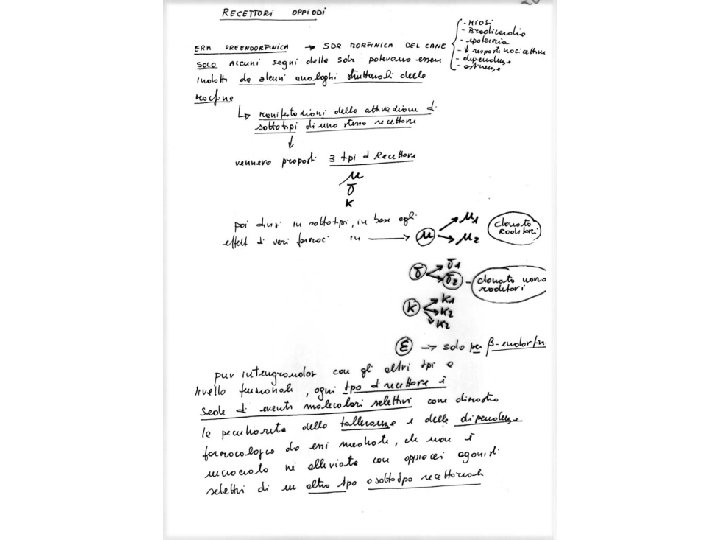 RECETTORI OPPIOIDI
ERA PREENDORFINICA → SDR MORFINICA DEL CANE
- MIOSI
- Bradicardia
- ipotermia
- ↓ risposta nocicettiva
- dipendenza
- astinenza
SOLO alcuni segni della sdr potevano essere
indotti da alcuni analoghi strutturali della
morfina
↳ manifestazioni della attivazione di
sottotipi di uno stesso recettore
↓
vennero proposti 3 tipi di Recettore
μ
δ
K
poi divisi in sottotipi, in base agli
effetti di vari farmaci in → μ
μ1
μ2
clonato
roditori
δ
δ1
δ2 - clonato uomo
roditori
K
K1
K2
K2
ε → solo per β-endorfin
pur integrandosi con gli altri tipi a
livello funzionale, ogni tipo di recettore è
sede di eventi molecolari selettivi come dimostra
la peculiarità della tolleranza e della dipendenza
farmacologica da essi mediati, che non è
incrociata nè alleviata con oppiacei agonisti
selettivi di un altro tipo o sottotipo recettoriale